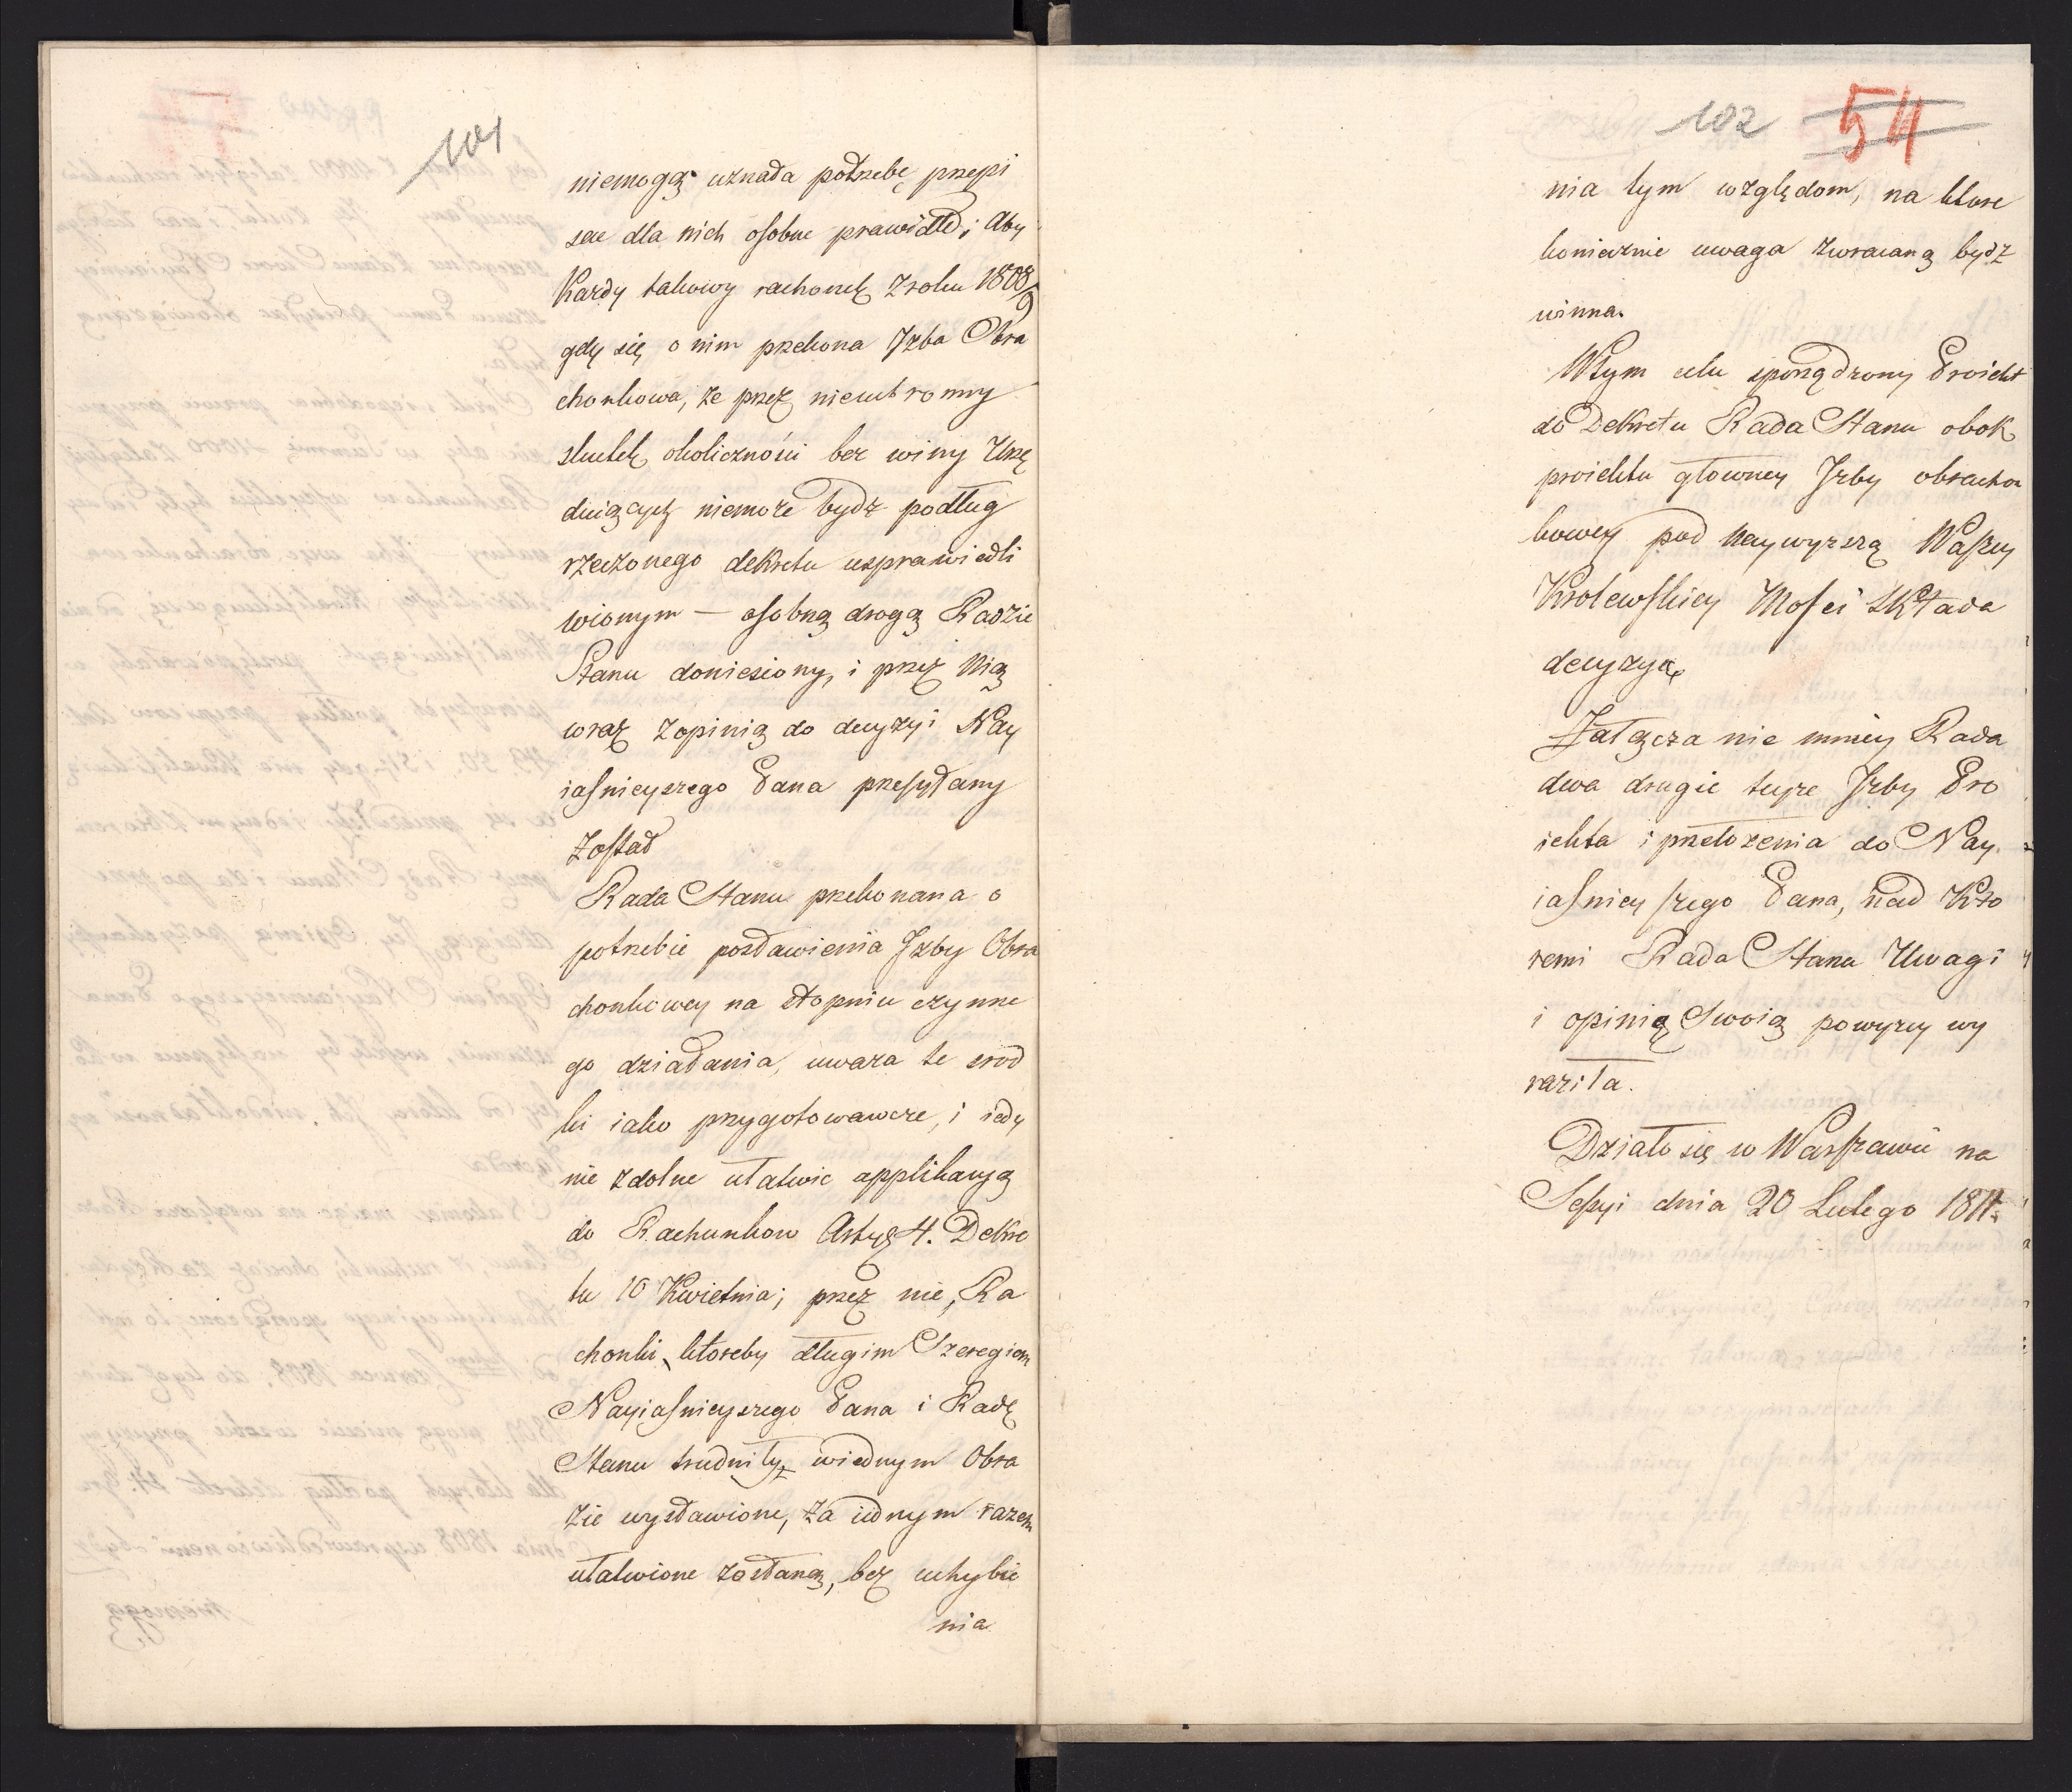 101
niemogą uznała potrzebę przepi
sać dla nich osobne prawidło; aby
Każdy takowy rachonek z roku 1808/9
gdy się o nim przekona Jzba Obra
chonkowa, że przez nieuchronny
skutek okoliczności bez winy Urzę
duiących niemoże bydź podług
rzeczonego dekretu usprawiedli
wionym — osobną drogą Radzie
Stanu doniesiony, i przez Nią
wraz z opinią do decyzyi Nay
iaśnieyszego Pana przesyłany
został
Rada Stanu przekonana o
potrzebie postawienia Jzby Obra
chonkowey na stopniu czynne
go działania, uważa te srod
ki iako przygotowawcze, i iedy
nie zdolne ułatwic applikacyą
do Rachunkow Artyg 4. Dekre
tu 10 Kwietnia; przez nie, Ra
chonki, ktoreby długim Szeregiem
Nayiaśnieyszego Pana i Radę
Stanu trudniły, wiednym Obra
zie wystawione, za iednym razem
ułatwione zostaną, bez uchybie
nia
102 54
nia tym względom, na ktore
koniecznie uwaga zwracaną bydź
winna.
W tym celu sporządzony Proiekt
do Dekretu Rada Stanu obok
proiektu głowney Jzby obracho
kowey pod Naywyższą Waszey
Krolewskiey Mości składa
decyzyą.
Załącza nie mniey Rada
dwa drugie teyże Jzby Pro
iekta i przełożenia do Nay
iaśnieyszego Pana, nad Kto
remi Rada Stanu Uwagi
i opinię Swoią powyżey wy
raziła.
Działo się w Warszawie na
Sessyi dnia 20 Lutego 1811.